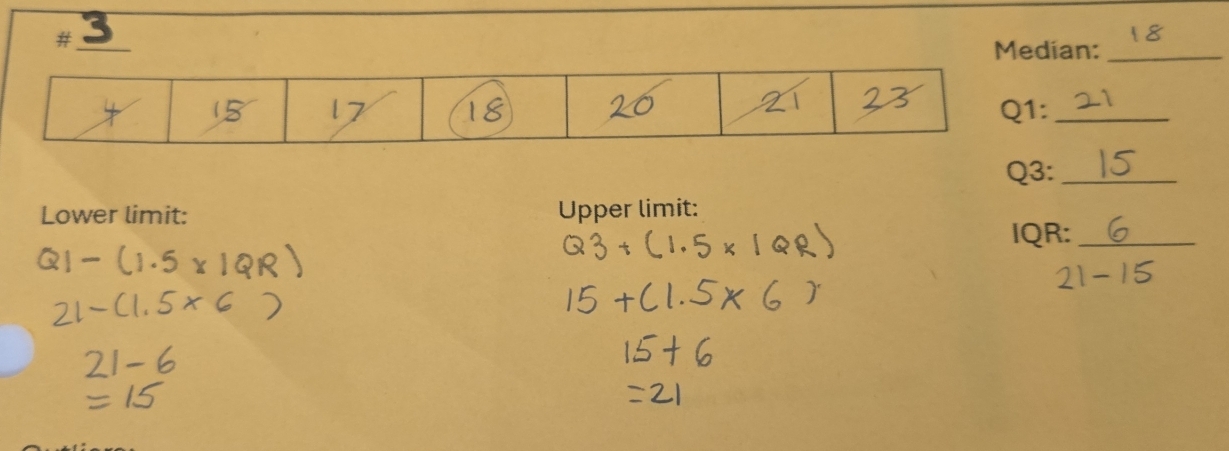 # 3
Median: 18
4 15 17 18 20 21 23
Q1: 21
Q3: 15
Lower limit:
Upper limit:
IQR: 6
21-15
Q1-(1.5 x IQR)
21-(1.5 x 6 )
21-6
=15
Q3+(1.5 x IQR)
15+(1.5 x 6 )
15+6
=21